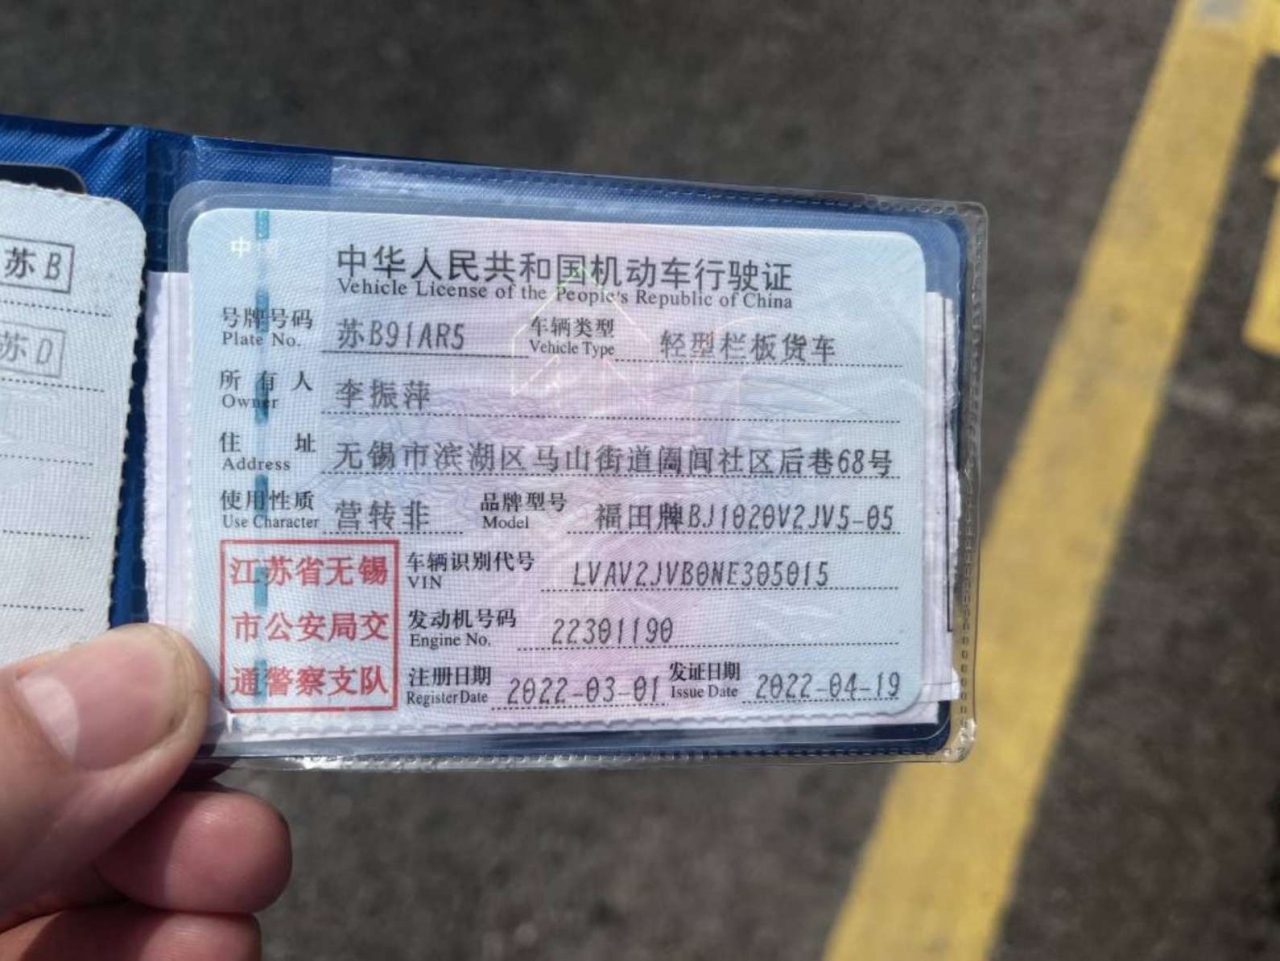 苏B
苏D
中
中华人民共和国机动车行驶证
Vehicle License of the People's Republic of China
号牌号码 苏B91AR5 车辆类型 轻型栏板货车
Plate No. Vehicle Type
所有人 李振萍
Owner
住址 无锡市滨湖区马山街道阖闾社区后巷68号
Address
使用性质 营转非 品牌型号 福田牌BJ1020V2JV5-05
Use Character Model
江苏省无锡
市公安局交
通警察支队
车辆识别代号 LVAV2JVB0NE305015
VIN
发动机号码 22301190
Engine No.
注册日期 2022-03-01 发证日期 2022-04-19
Register Date Issue Date